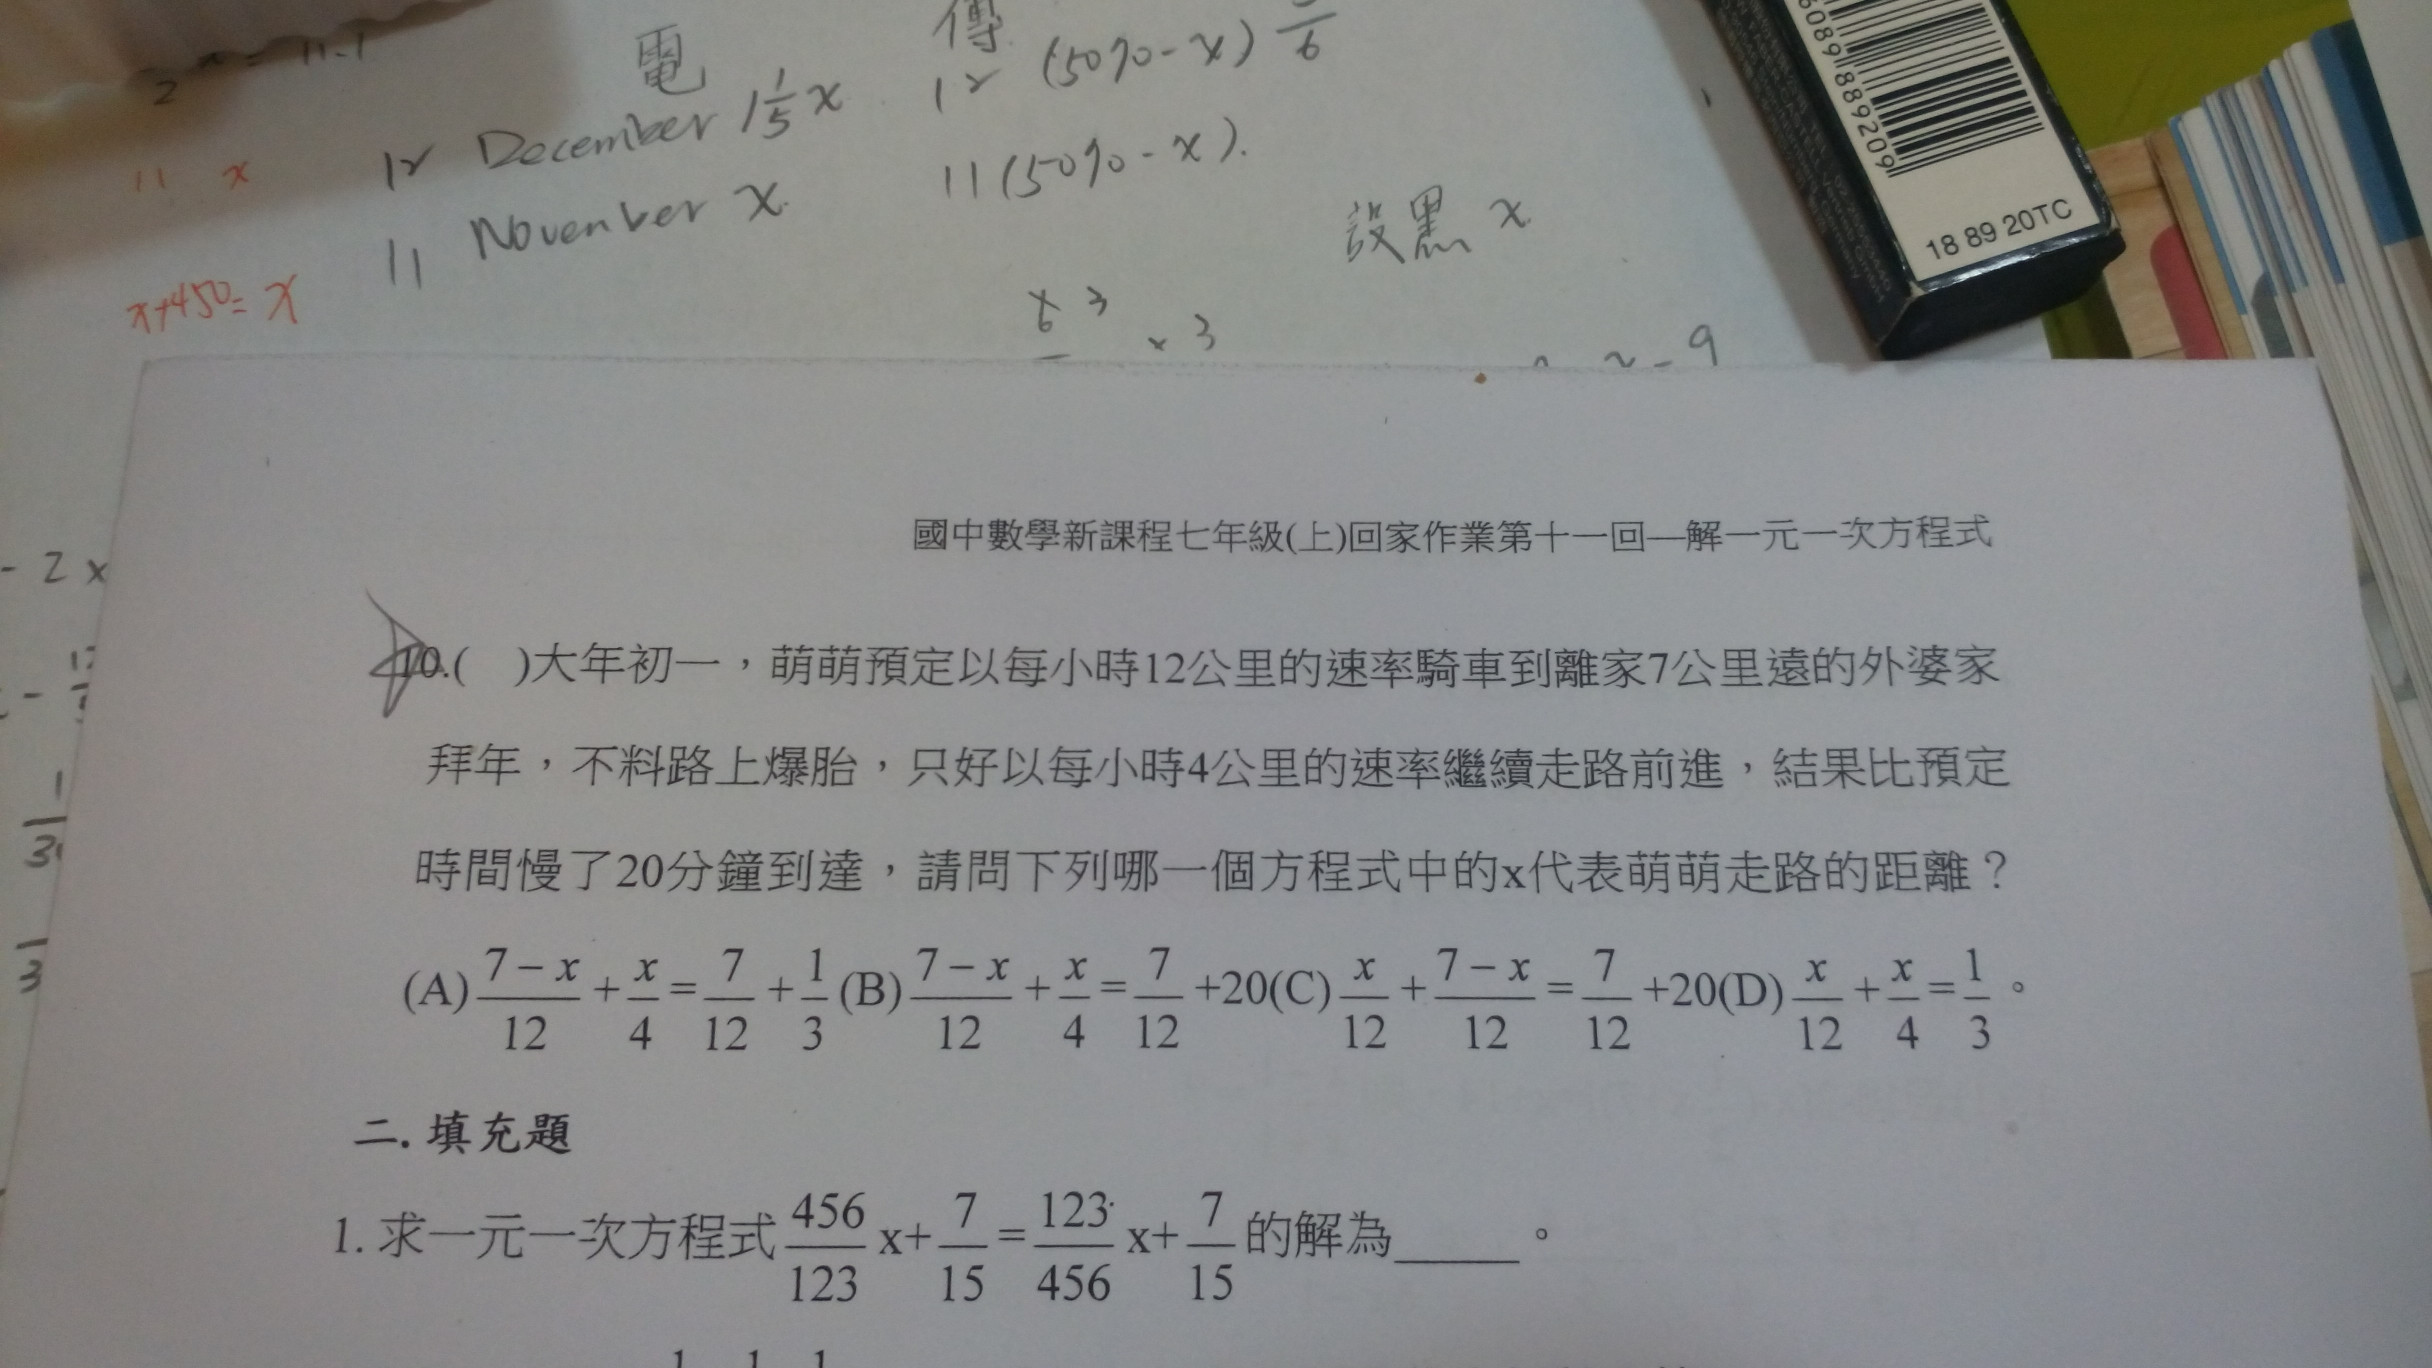 電 傳
12 December 1 1/5 x 12 (50%-x) 5/6
11 x
11 November x 11 (50%-x).
設黑 x
x+450=x
x 3
6
x 3
x-9
18 89 20TC
- 2x
國中數學新課程七年級(上)回家作業第十一回—解一元一次方程式
10.( )大年初一，萌萌預定以每小時12公里的速率騎車到離家7公里遠的外婆家
拜年，不料路上爆胎，只好以每小時4公里的速率繼續走路前進，結果比預定
時間慢了20分鐘到達，請問下列哪一個方程式中的x代表萌萌走路的距離？
(A) (7-x)/12 + x/4 = 7/12 + 1/3 (B) (7-x)/12 + x/4 = 7/12 +20(C) x/12 + (7-x)/12 = 7/12 +20(D) x/12 + x/4 = 1/3 。
二. 填充題
1. 求一元一次方程式 456/123 x+ 7/15 = 123/456 x+ 7/15 的解為_____。